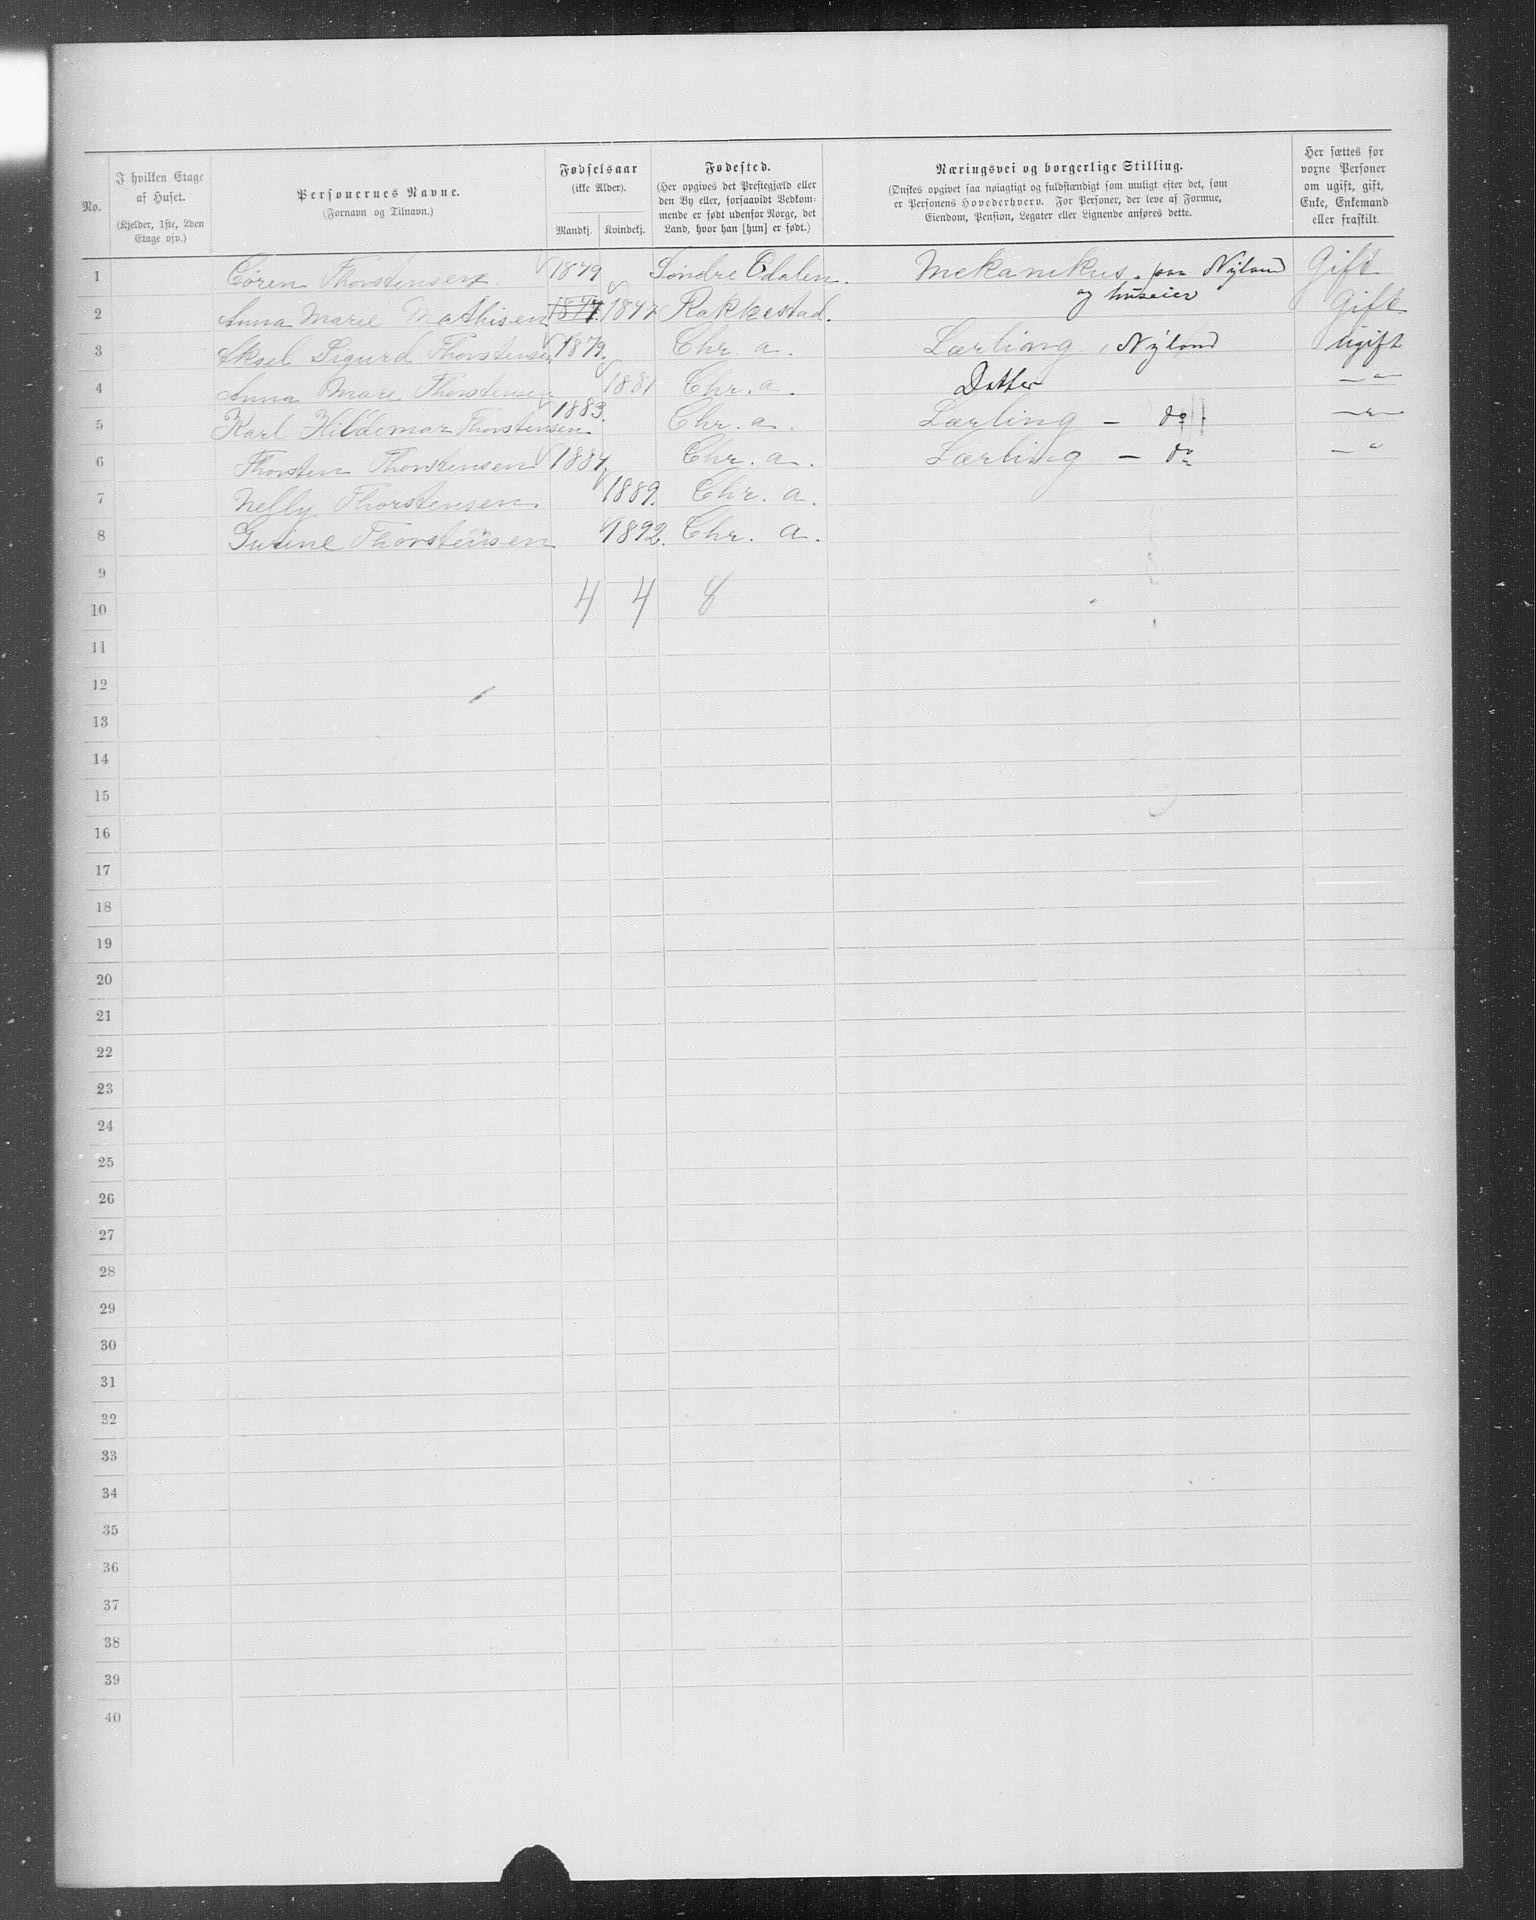 No.
I hvilken Etage
af Huset.
(Kjelder, 1ste, 2den
Etage osv.)
Personernes Navne.
(Fornavn og Tilnavn.)
Fødselsaar
(ikke Alder).
Mandkj. Kvindekj.
Fødested.
(Her opgives det Præstegjæld eller
den By eller, forsaavidt Vedkom-
mende er født udenfor Norge, det
Land, hvor han [hun] er født.)
Næringsvei og borgerlige Stilling.
(Ønskes opgivet saa nøiagtigt og fuldstændigt som muligt efter det, som
er Personens Hovederhverv. For Personer, der leve af Formue,
Eiendom, Pension, Legater eller Lignende anføres dette.
Her sættes for
voxne Personer
om ugift, gift,
Enke, Enkemand
eller fraskilt.
1 Cören Thorstensen 1849 Söndre Odalen. Mekanikus. paa Nyland Gift
og huseier
2 Anna Marie Mathisen 1847 1847 Rakkestad. Gift
3 Aksel Sigurd Thorstensen 1879. Chr. a. Lærling, Nyland Ugift
4 Anna Marie Thorstensen 1881 Chr. a. Datter — " —
5 Karl Hildemar Thorstensen 1883. Chr. a. Lærling — do — " —
6 Thorsten Thorstensen 1884. Chr. a. Lærling — do — "
7 Nelly Thorstensen. 1889. Chr. a.
8 Gurine Thorstensen 1892. Chr. a.
9
10 4 4 8
11
12
13
14
15
16
17
18
19
20
21
22
23
24
25
26
27
28
29
30
31
32
33
34
35
36
37
38
39
40